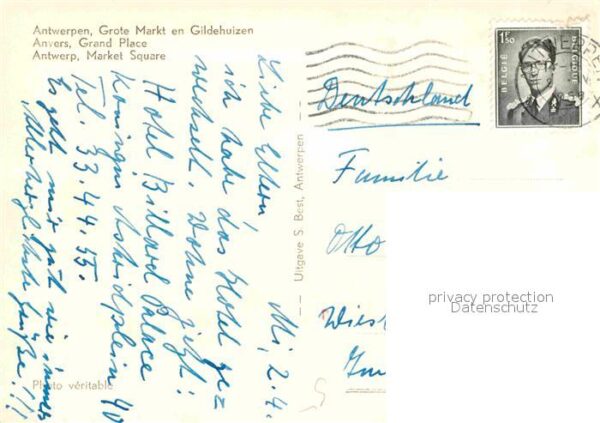 Antwerpen, Grote Markt en Gildehuizen
Anvers, Grand Place
Antwerp, Market Square
Mi, 2.4.
Liebe Eltern!
ich habe das Hotel ge-
wechselt. Wohne jetzt:
Hotel Billard Palace
Koningin Astridplein 40
Tel. 33.44.55.
Es geht mir gut wie immer
Allerherzlichste Grüße!!!
Photo véritable
Uitgave S. Best, Antwerpen
1F50
BELGIE
BELGIQUE
Deutschland
Familie
Otto
Wies
privacy protection
Datenschutz